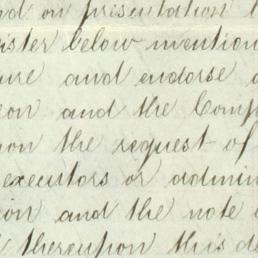 nd on presentation
ister below mention
ure and endorse
eon and the Comp
pon the request of
executors or admin
ion and the note
thereupon this d